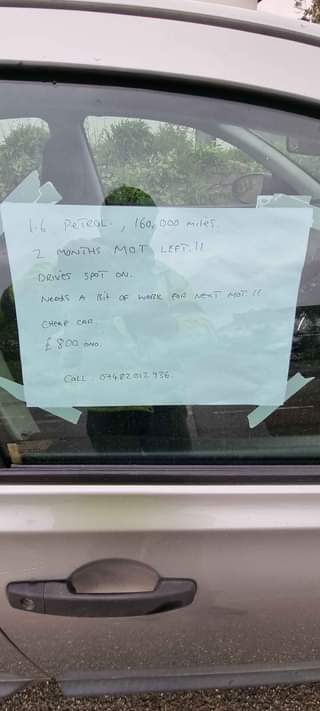 1.6 PETROL., 160,000 miles.
2 MONTHS M.O.T LEFT.!!
DRIVES SPOT ON.
NEEDS A BIT OF WORK FOR NEXT MOT.!!
CHEAP CAR.
£800 ONO.
CALL: 07482012936.